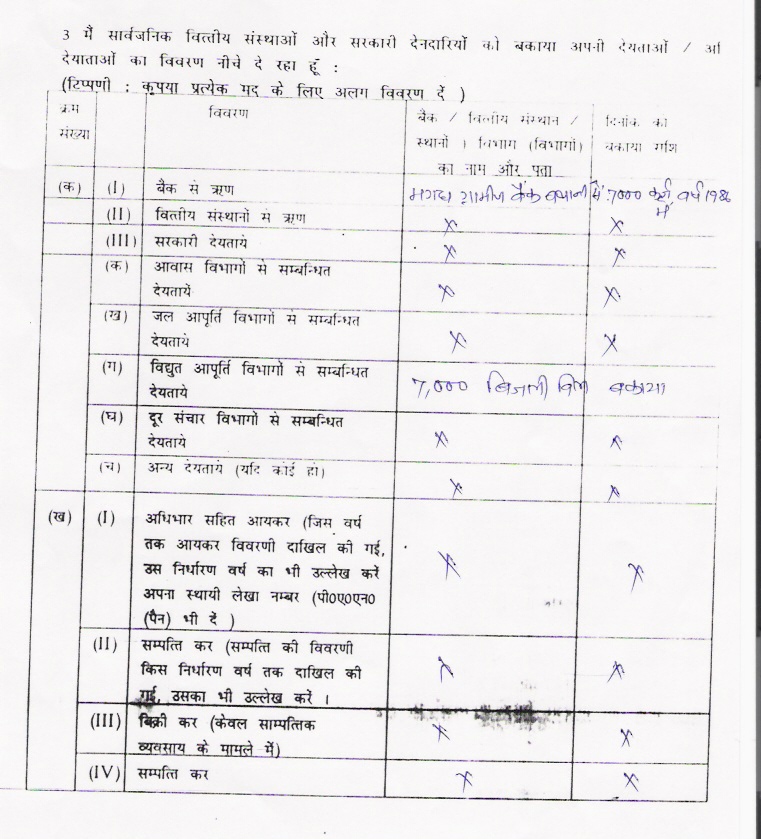 3 मैं सार्वजनिक वित्तीय संस्थाओं और सरकारी देनदारियों को बकाया अपनी देयताओं / अति
देयाताओं का विवरण नीचे दे रहा हूँ :
(टिप्पणी : कृपया प्रत्येक मद के लिए अलग विवरण दें )
क्रम संख्या
विवरण
बैंक / वित्तीय संस्थान /
स्थानों । विभाग (विभागों)
का नाम और पता
दिनांक को
बकाया राशि
(क) (I) बैंक से ऋण
ग्रामीण बैंक में 7000 कर्ज वर्ष 1986 में
(II) वित्तीय संस्थानों से ऋण X X
(III) सरकारी देयताये X X
(क) आवास विभागों से सम्बन्धित
देयताये X X
(ख) जल आपूर्ति विभागों से सम्बन्धित
देयताये X X
(ग) विद्युत आपूर्ति विभागों से सम्बन्धित
देयताये 7,000 बिजली बिल बकाया
(घ) दूर संचार विभागों से सम्बन्धित
देयताये X X
(च) अन्य देयताये (यदि कोई हो) X X
(ख) (I) अधिभार सहित आयकर (जिस वर्ष
तक आयकर विवरणी दाखिल की गई,
उस निर्धारण वर्ष का भी उल्लेख करें X X
अपना स्थायी लेखा नम्बर (पी0ए0एन0
(पैन) भी दें )
(II) सम्पत्ति कर (सम्पत्ति की विवरणी
किस निर्धारण वर्ष तक दाखिल की X X
गई, उसका भी उल्लेख करें ।
(III) बिक्री कर (केवल साम्पत्तिक X X
व्यवसाय के मामले में)
(IV) सम्पत्ति कर X X